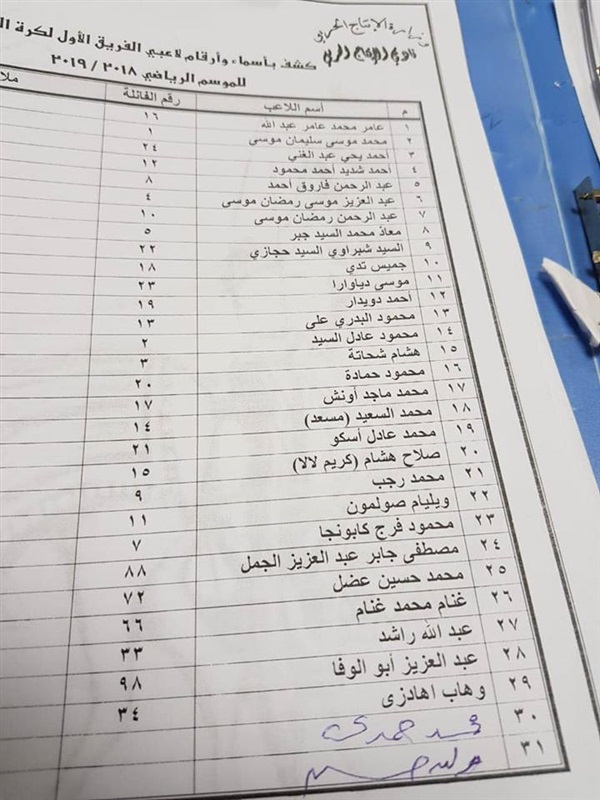 وزارة الإنتاج الحربي
نادي الإنتاج الحربي
كشف بأسماء وأرقام لاعبي الفريق الأول لكرة
للموسم الرياضي ٢٠١٨ / ٢٠١٩
م أسم اللاعب رقم الفانلة
١ عامر محمد عامر عبد الله ١٦
٢ محمد موسى سليمان موسى ١
٣ أحمد يحي عبد الغني ٢٤
٤ أحمد شديد أحمد محمود ١٢
٥ عبد الرحمن فاروق أحمد ٨
٦ عبد العزيز موسى رمضان موسى ٤
٧ عبد الرحمن رمضان موسى ١٠
٨ معاذ محمد السيد جبر ٥
٩ السيد شبراوي السيد حجازي ٢٢
١٠ جميس تدي ١٨
١١ موسى دياوارا ٢٣
١٢ أحمد دويدار ١٩
١٣ محمود البدري على ١٣
١٤ محمود عادل السيد ٢
١٥ هشام شحاتة ٣
١٦ محمود حمادة ٢٠
١٧ محمد ماجد أونش ١٧
١٨ محمد السعيد (مسعد) ١٤
١٩ محمد عادل أسكو ٢١
٢٠ صلاح هشام (كريم لالا) ١٥
٢١ محمد رجب ٩
٢٢ ويليام صولمون ١١
٢٣ محمود فرج كابونجا ٧
٢٤ مصطفى جابر عبد العزيز الجمل ٨٨
٢٥ محمد حسين عضل ٧٢
٢٦ غنام محمد غنام ٦٦
٢٧ عبد الله راشد ٣٣
٢٨ عبد العزيز أبو الوفا ٩٨
٢٩ وهاب اهادزى ٣٤
٣٠ محمد حمدى
٣١